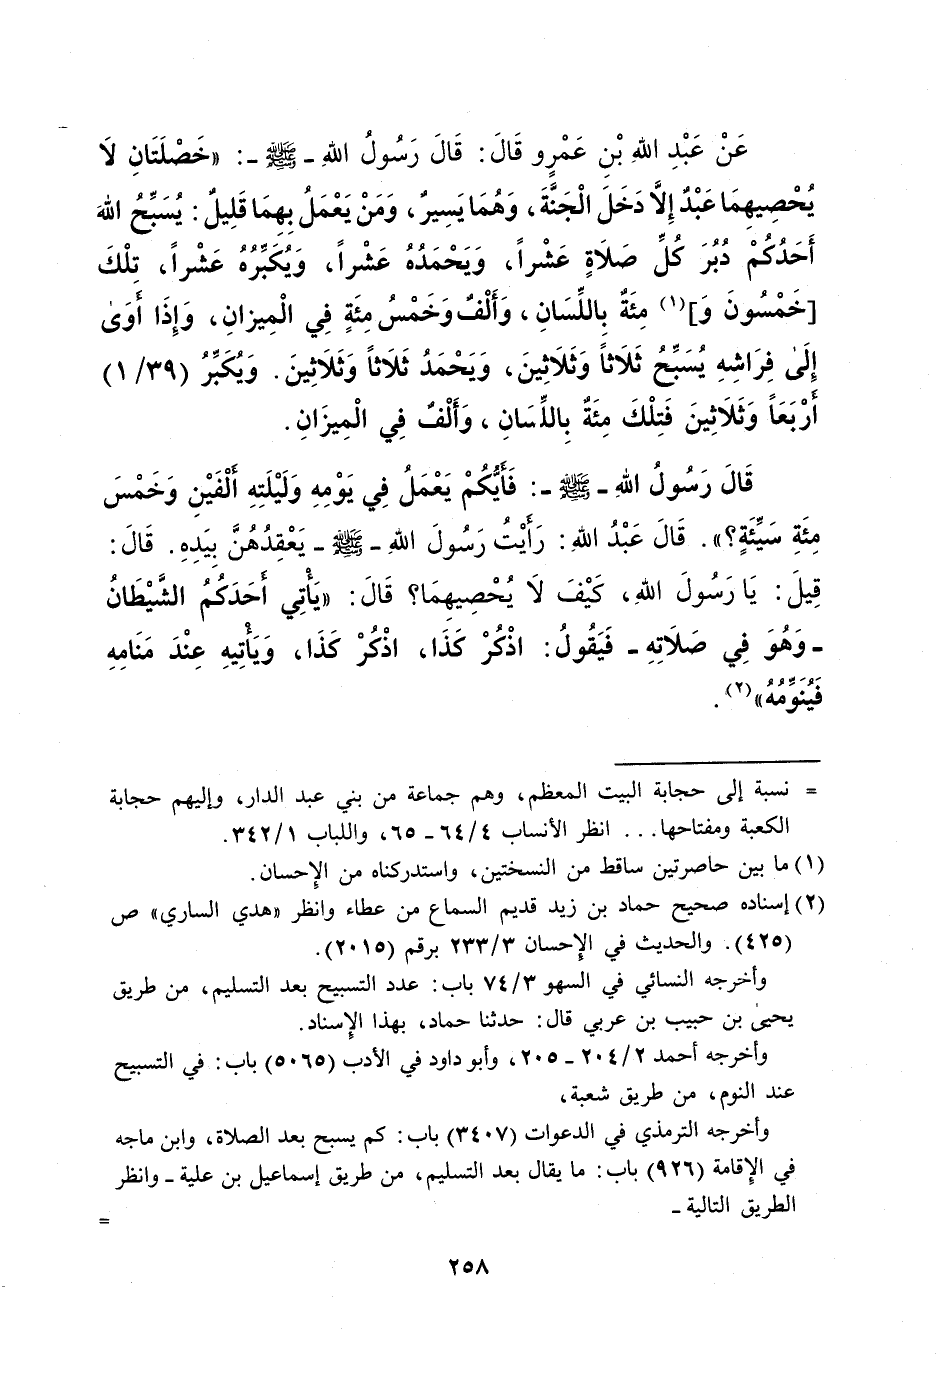 عَنْ عَبْدِ اللهِ بْنِ عَمْرٍو قَالَ: قَالَ رَسُولُ اللهِ - ﷺ -: «خَصْلَتَانِ لَا
يُحْصِيهِمَا عَبْدٌ إِلَّا دَخَلَ الْجَنَّةَ، وَهُمَا يَسِيرٌ، وَمَنْ يَعْمَلُ بِهِمَا قَلِيلٌ: يُسَبِّحُ اللهَ
أَحَدُكُمْ دُبُرَ كُلِّ صَلَاةٍ عَشْراً، وَيَحْمَدُهُ عَشْراً، وَيُكَبِّرُهُ عَشْراً، تِلْكَ
[خَمْسُونَ وَ](١) مِئَةٌ بِاللِّسَانِ، وَأَلْفٌ وَخَمْسُ مِئَةٍ فِي الْمِيزانِ، وَإِذَا أَوَىٰ
إِلَىٰ فِرَاشِهِ يُسَبِّحُ ثَلَاثاً وَثَلَاثِينَ، وَيَحْمَدُ ثَلَاثاً وَثَلَاثِينَ. وَيُكَبِّرُ (١/٣٩)
أَرْبَعَاً وَثَلَاثِينَ فَتِلْكَ مِئَةٌ بِاللِّسَانِ، وَأَلْفٌ فِي الْمِيزَانِ.
قَالَ رَسُولُ اللهِ - ﷺ -: فَأَيُّكُمْ يَعْمَلُ فِي يَوْمِهِ وَلَيْلَتِهِ أَلْفَيْنِ وَخَمْسَ
مِئَةِ سَيِّئَةٍ؟». قَالَ عَبْدُ اللهِ: رَأَيْتُ رَسُولَ اللهِ - ﷺ - يَعْقِدُهُنَّ بِيَدِهِ. قَالَ:
قِيلَ: يَا رَسُولَ اللهِ، كَيْفَ لَا يُحْصِيهِمَا؟ قَالَ: «يَأْتِي أَحَدَكُمُ الشَّيْطَانُ
- وَهُوَ فِي صَلَاتِهِ - فَيَقُولُ: اذْكُرْ كَذَا، اذْكُرْ كَذَا، وَيَأْتِيهِ عِنْدَ مَنَامِهِ
فَيُنَوِّمُهُ»(٢).
= نسبة إلى حجابة البيت المعظم، وهم جماعة من بني عبد الدار، وإليهم حجابة
الكعبة ومفتاحها... انظر الأنساب ٦٤/٤ - ٦٥، واللباب ٣٤٢/١.
(١) ما بين حاصرتين ساقط من النسختين، واستدركناه من الإحسان.
(٢) إسناده صحيح حماد بن زيد قديم السماع من عطاء وانظر «هدي الساري» ص
(٤٢٥). والحديث في الإحسان ٢٣٣/٣ برقم (٢٠١٥).
وأخرجه النسائي في السهو ٧٤/٣ باب: عدد التسبيح بعد التسليم، من طريق
يحيىٰ بن حبيب بن عربي قال: حدثنا حماد، بهذا الإسناد.
وأخرجه أحمد ٢٠٤/٢ - ٢٠٥، وأبو داود في الأدب (٥٠٦٥) باب: في التسبيح
عند النوم، من طريق شعبة،
وأخرجه الترمذي في الدعوات (٣٤٠٧) باب: كم يسبح بعد الصلاة، وابن ماجه
في الإقامة (٩٢٦) باب: ما يقال بعد التسليم، من طريق إسماعيل بن علية - وانظر
الطريق التالية -
=
٢٥٨